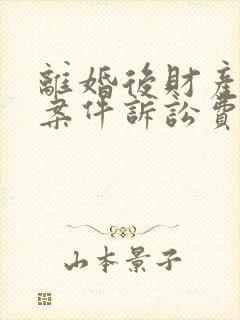 離婚後財産
案件訴訟費
山本景子